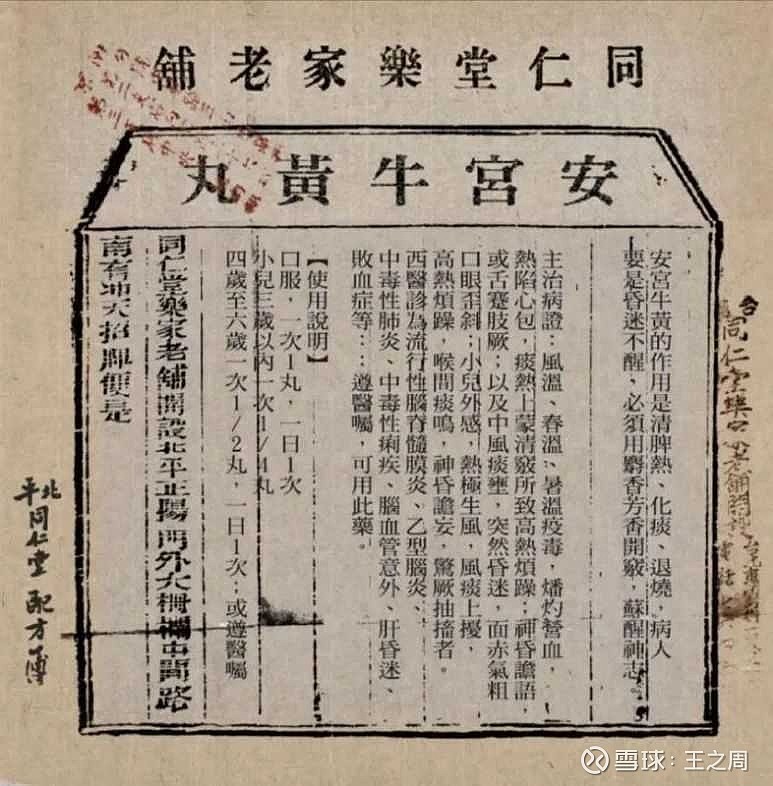 同仁堂樂家老舖
安宮牛黃丸
安宮牛黃的作用是清脾熱、化痰、退燒，病人
要是昏迷不醒，必須用麝香芳香開竅，蘇醒神志。
主治病證：風溫、春溫、暑溫疫毒，燔灼營血，
熱陷心包，痰熱上蒙清竅所致高熱煩躁；神昏譫語，
或舌蹇肢厥；以及中風痰壅，突然昏迷，面赤氣粗
口眼歪斜；小兒外感，熱極生風，風痰上擾，
高熱煩躁，喉間痰鳴，神昏譫妄，驚厥抽搐者。
西醫診為流行性腦脊髓膜炎、乙型腦炎、
中毒性肺炎、中毒性痢疾、腦血管意外、肝昏迷、
敗血症等…：遵醫囑，可用此藥。
【使用說明】
口服，一次1丸，一日1次
小兒三歲以內一次1/4丸
四歲至六歲一次1/2丸，一日1次；或遵醫囑
同仁堂樂家老舖開設北平正陽門外大柵欄中間路
南有冲天招牌便是
北平同仁堂配方簿
同仁堂樂
老舖開設
雪球：王之周